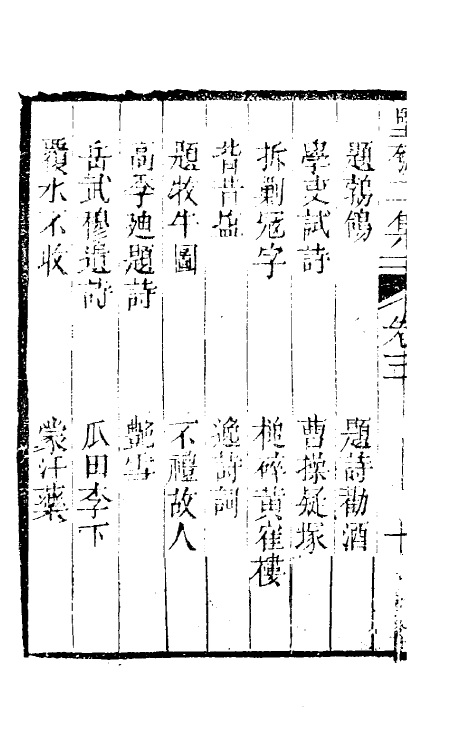 堅瓠二集 卷三 十
題鵓鴿 題詩勸酒
學吏試詩 曹操疑塚
拆剿冦字 槌碎黃崔樓
昔昔鹽 逸詩詞
題牧牛圖 不禮故人
高季迪題詩 艷雪
岳武穆遺詩 瓜田李下
覆水不收 蒙汗藥